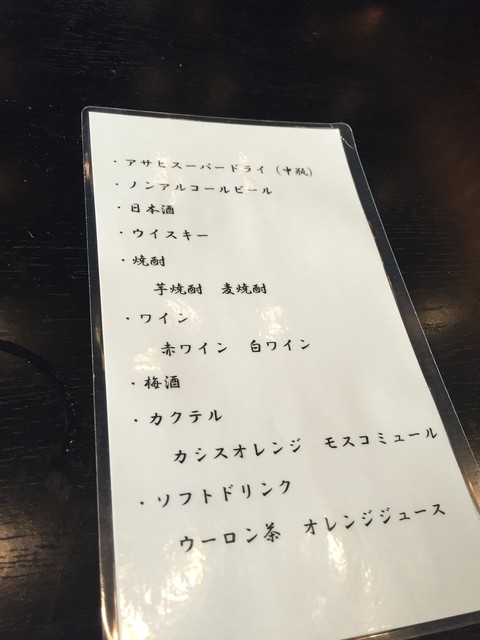 ・アサヒスーパードライ（中瓶）
・ノンアルコールビール
・日本酒
・ウイスキー
・焼酎
芋焼酎　麦焼酎
・ワイン
赤ワイン　白ワイン
・梅酒
・カクテル
カシスオレンジ　モスコミュール
・ソフトドリンク
ウーロン茶　オレンジジュース